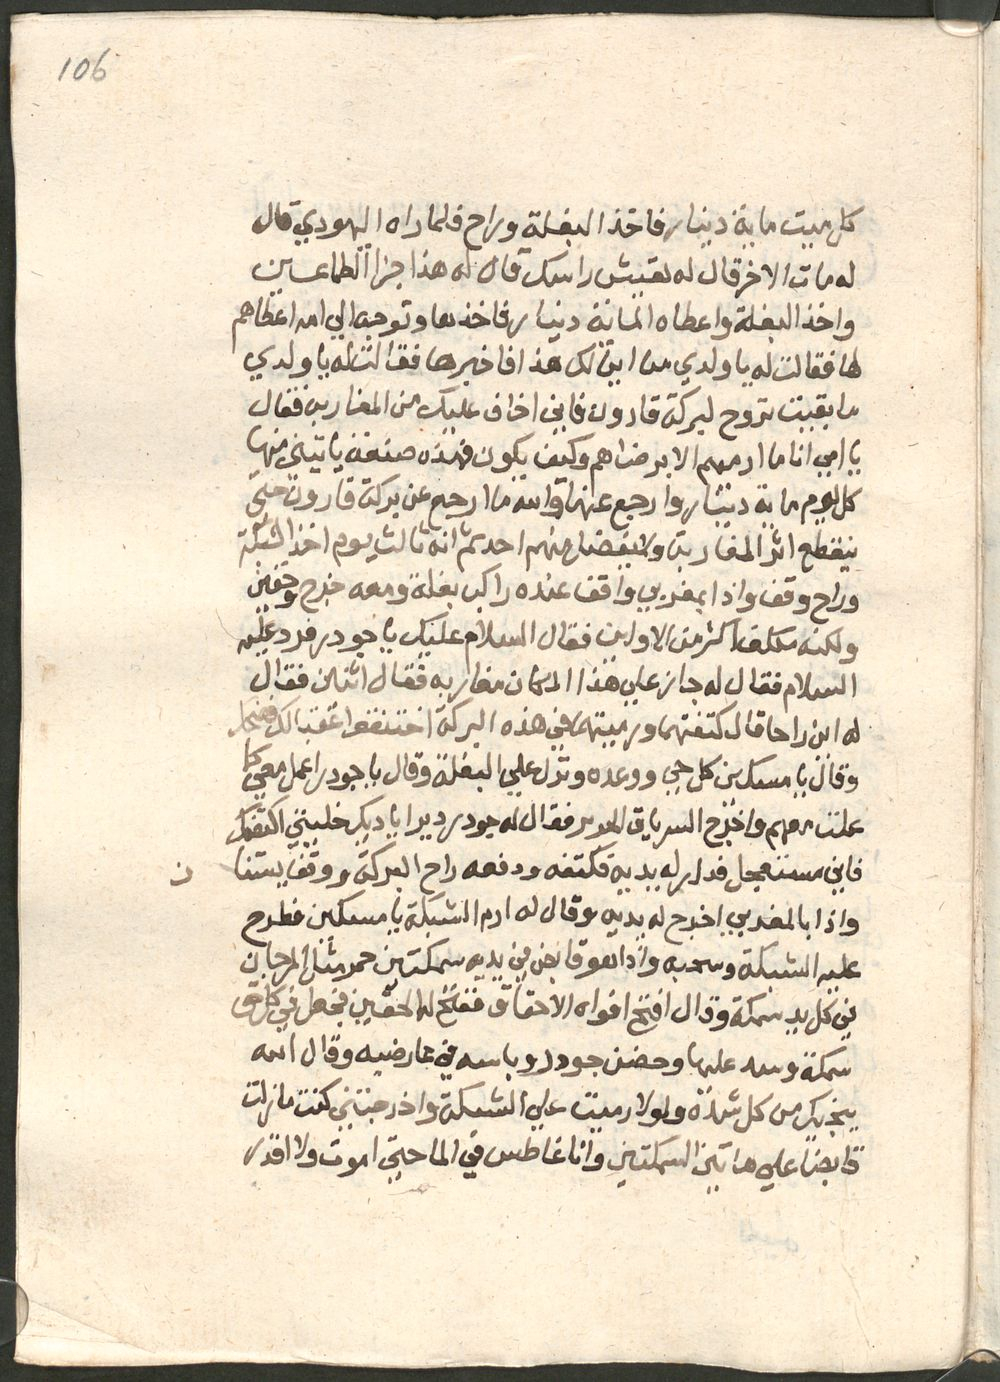 106
كل ميت ماية دينار فاخذ البغلة وراح فلما راه اليهودي قال
له مات الاخر قال له تعيش راسك قال له هذا جزا الطماعين
واخذ البغلة واعطاه الماية دينار فاخذها وتوجه الي امه اعطاهم
لها فقالت له يا ولدي من اين لك هذا فاخبرها فقالت له يا ولدي
ما بقيت تروح لبركة قارون فاني اخاف عليك من المغاربه فقال
يا امي انا ما ارميهم الا برضاهم وكيف يكون هذه صنعة ياتيني منها
كل يوم ماية دينار وارجع عنها والله ما ارجع عن بركة قارون حتي
ينقطع اثر المغاربة ولا يفضل منهم احد ثم انه ثالث يوم اخذ الشبكة
وراح وقف واذا بمغربي واقف عنده راكب بغلة ومعه خرج وحقين
ولكنه مكلف اكثر من الاولين فقال السلام عليك يا جودر فرد عليه
السلام فقال له جاز علي هذا المكان مغاربه فقال اثنين فقال
له اين راحا قال كتفتهما ورميتهما في هذه البركة اختنقوا عقبالك فضحك
وقال يا مسكين كل حي ووعده ونزل علي البغلة وقال يا جودر اعمل معي كما
عملت معهم واخرج السرياق الحرير فقال له جودر دير ايا ديك خليني اكتفك
فاني مستعجل فدار له يديه فكتفه ودفعه راح البركة ووقف يستنا
ن
واذا بالمغربي اخرج له يديه وقال له ارم الشبكة يا مسكين فطرح
عليه الشبكة وسحبه واذا هو قابض في يديه سمكتين حمر مثل المرجان
في كل يد سمكة وقال افتح افواه الاحقاق ففتح له الحقين فجعل في كل حق
سمكة وسد عليها وحضن جودر وباسه في عارضيه وقال الله
ينجيك من كل شدة ولولا رميت علي الشبكة واخرجتني كنت ما زلت
قابضا علي هاتين السمكتين وانا غاطس في الما حتي اموت ولا اقدر